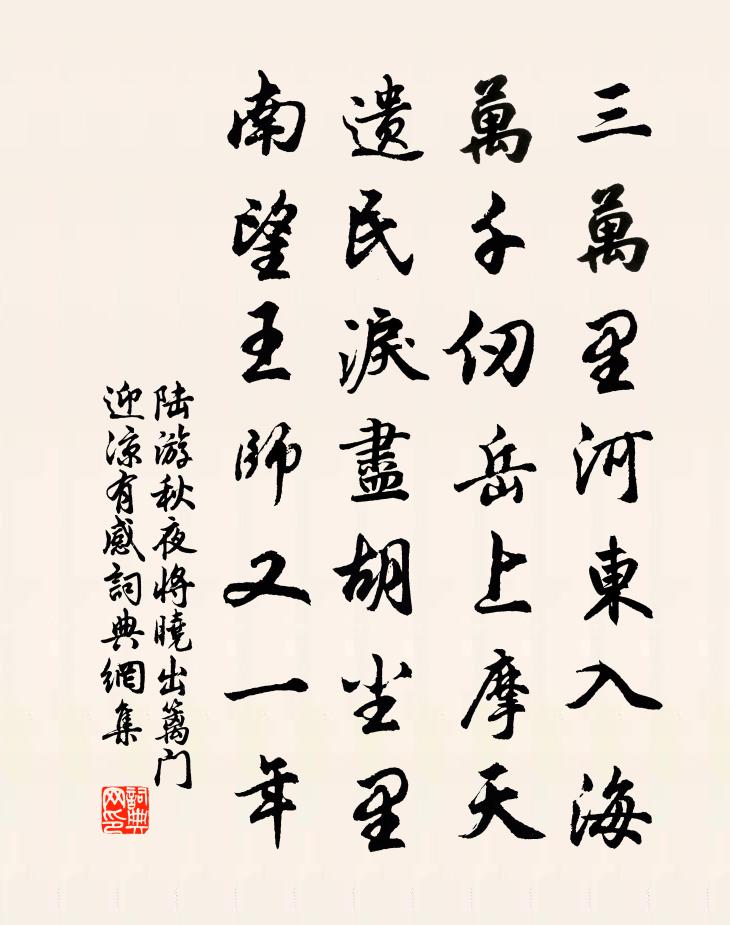 三萬里河東入海
萬千仞岳上摩天
遺民淚盡胡尘里
南望王師又一年
陆游秋夜将曉出篱门
迎凉有感詞典網集
詞典
网印